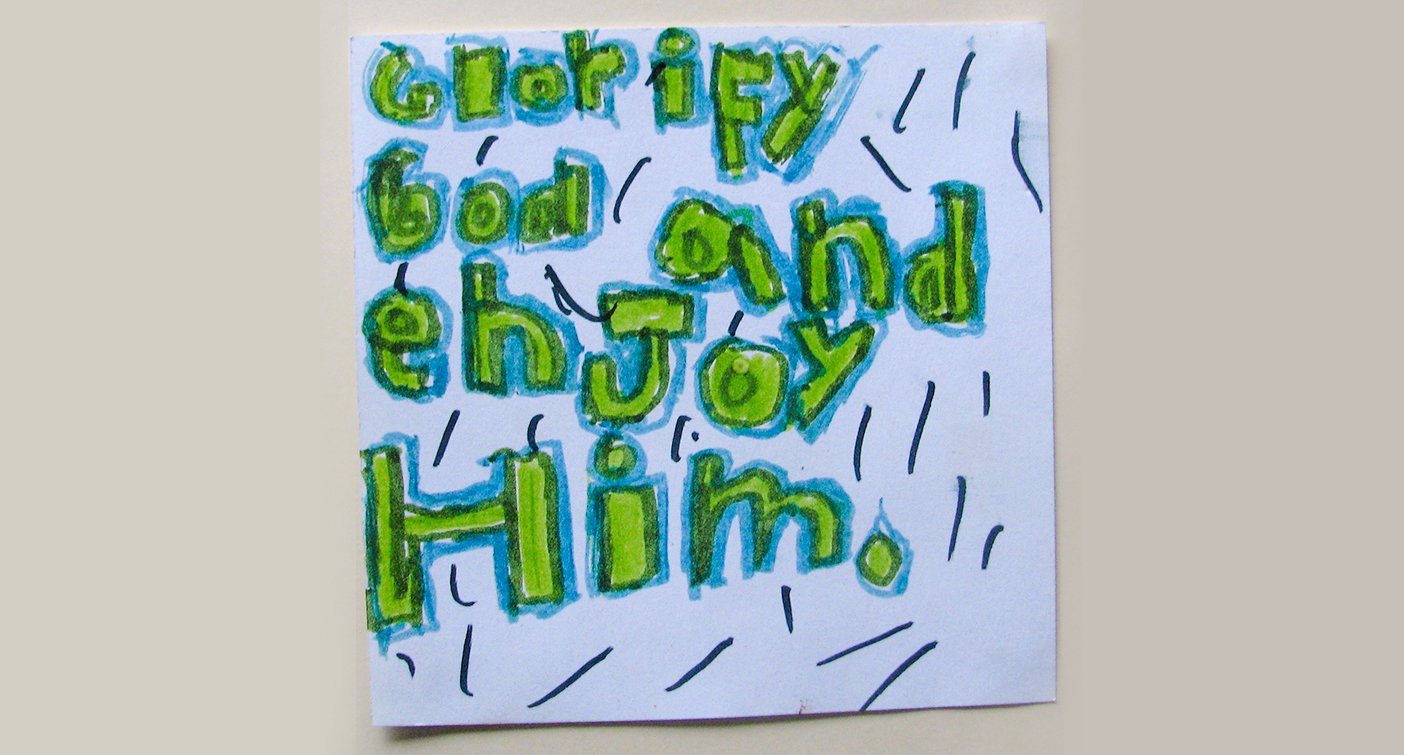 Glorify
God and
enJoy
Him.